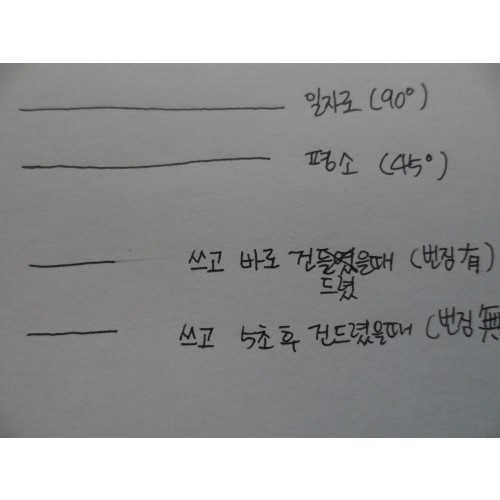 일자로 (90°)
평소 (45°)
쓰고 바로 건들였을때 (번짐 有)
드렸
쓰고 5초후 건드렸을때 (번짐 無